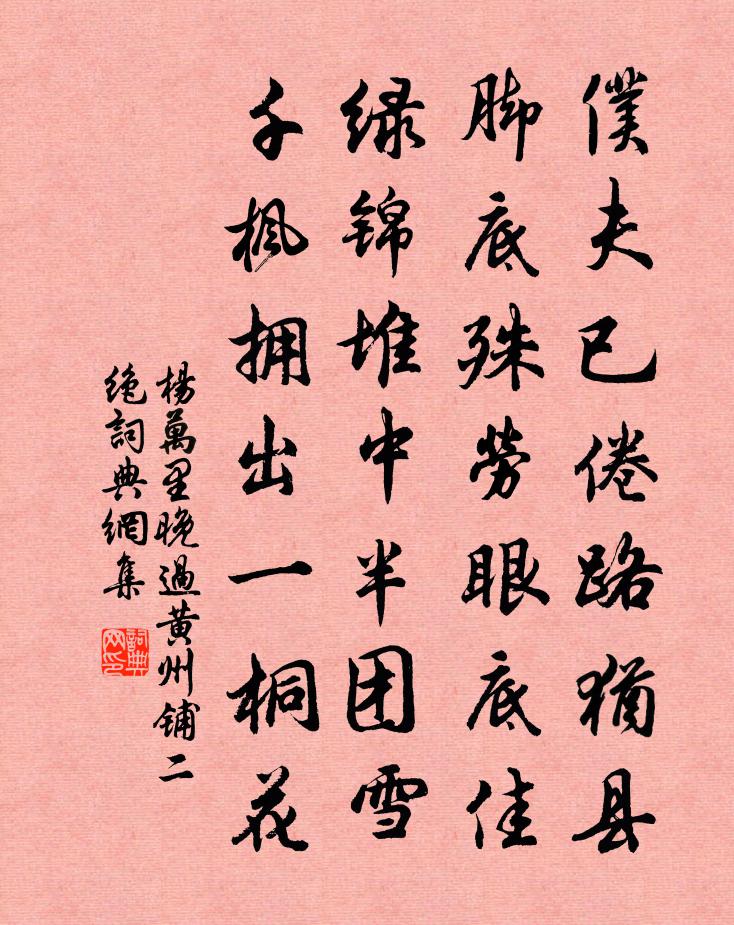 僕夫已倦路猶县
脚底殊勞眼底佳
绿锦堆中半团雪
千枫拥出一桐花
楊萬里晚過黄州铺二
绝詞典網集
詞典网印